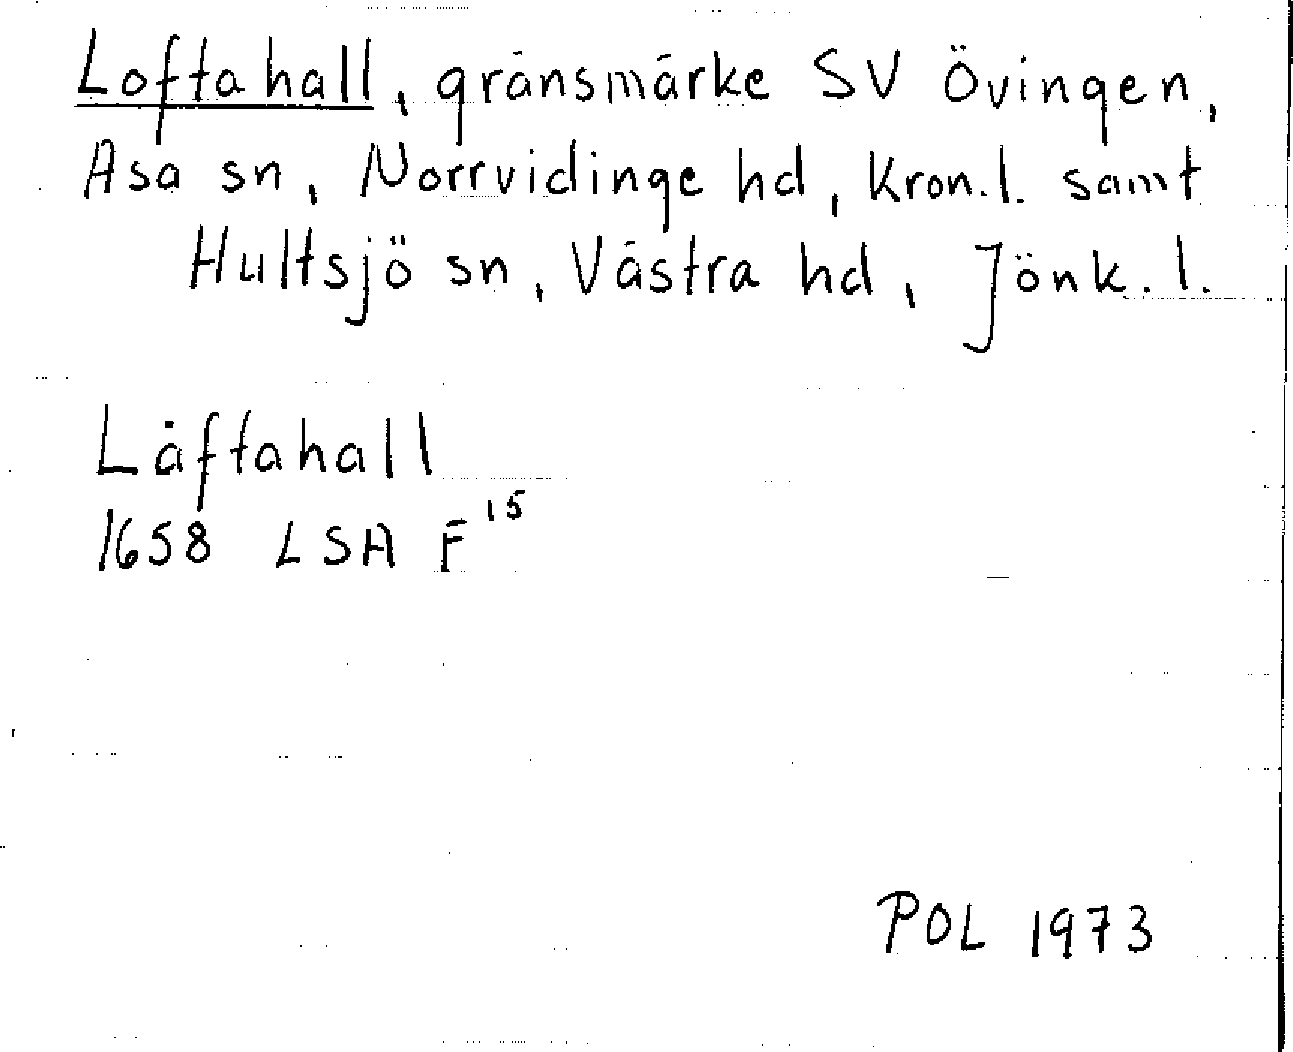 Loftahall, gränsmärke SV Övingen,
Asa sn, Norrvidinge hd, Kron.l. samt
Hultsjö sn, Västra hd, Jönk.l.
Låftahall
1658 LSA F¹⁵
POL 1973